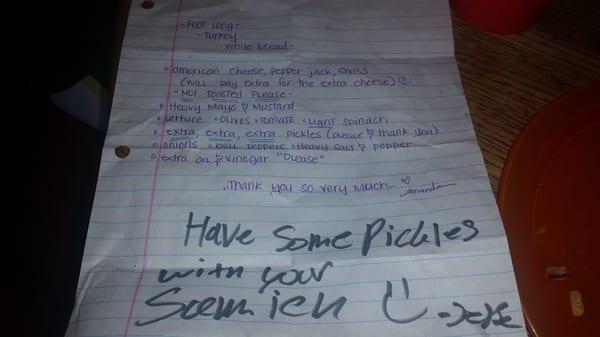 - FOOT LONG -
- Turkey
- white bread -
• American cheese, pepper jack, swiss
(will pay extra for the extra cheese) ☺
- NOT TOASTED PLEASE -
• Heavy Mayo & Mustard
• Lettuce • Olives • Tomato • Light spinach
• extra, extra, extra pickles (Please & thank you)
• Onions • Bell peppers • Heavy salt & pepper
• extra oil & vinegar "Please"
..Thank you so very much.. ♡
Amanda
Have Some Pickles
with your